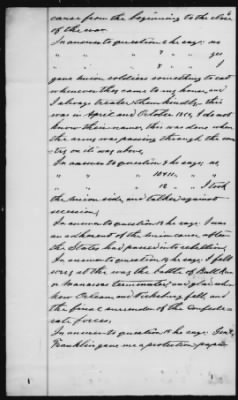 cause from the beginning to the close
of the war
In answer to question 6 he says: no
" " " 7 " " yes
" " " 8 " " I
gave union soldiers something to eat
whenever they came to my house, and
I always treated them kindly. this
was in April and October 186, I do not
know their names, this was done when
the army was passing through the coun-
try as it was above,
In answer to question 9 he says; no,
" " " 10 & 11 " "
" " " 12 " " I took
the Union side, and talked against
secession,
In answer to question 13 he says: I was
an adherent of the union cause after
the States had passed into rebellion,
In answer to question 14 he says: I felt
sorry at the way the battle of Bull Run
or Manassas terminated; and glad when
New Orleans and Vicksburg fell, and
the final surrender of the Confeder-
ate forces,
In answer to question 15 he says: Genl.
Franklin gave me a protection paper